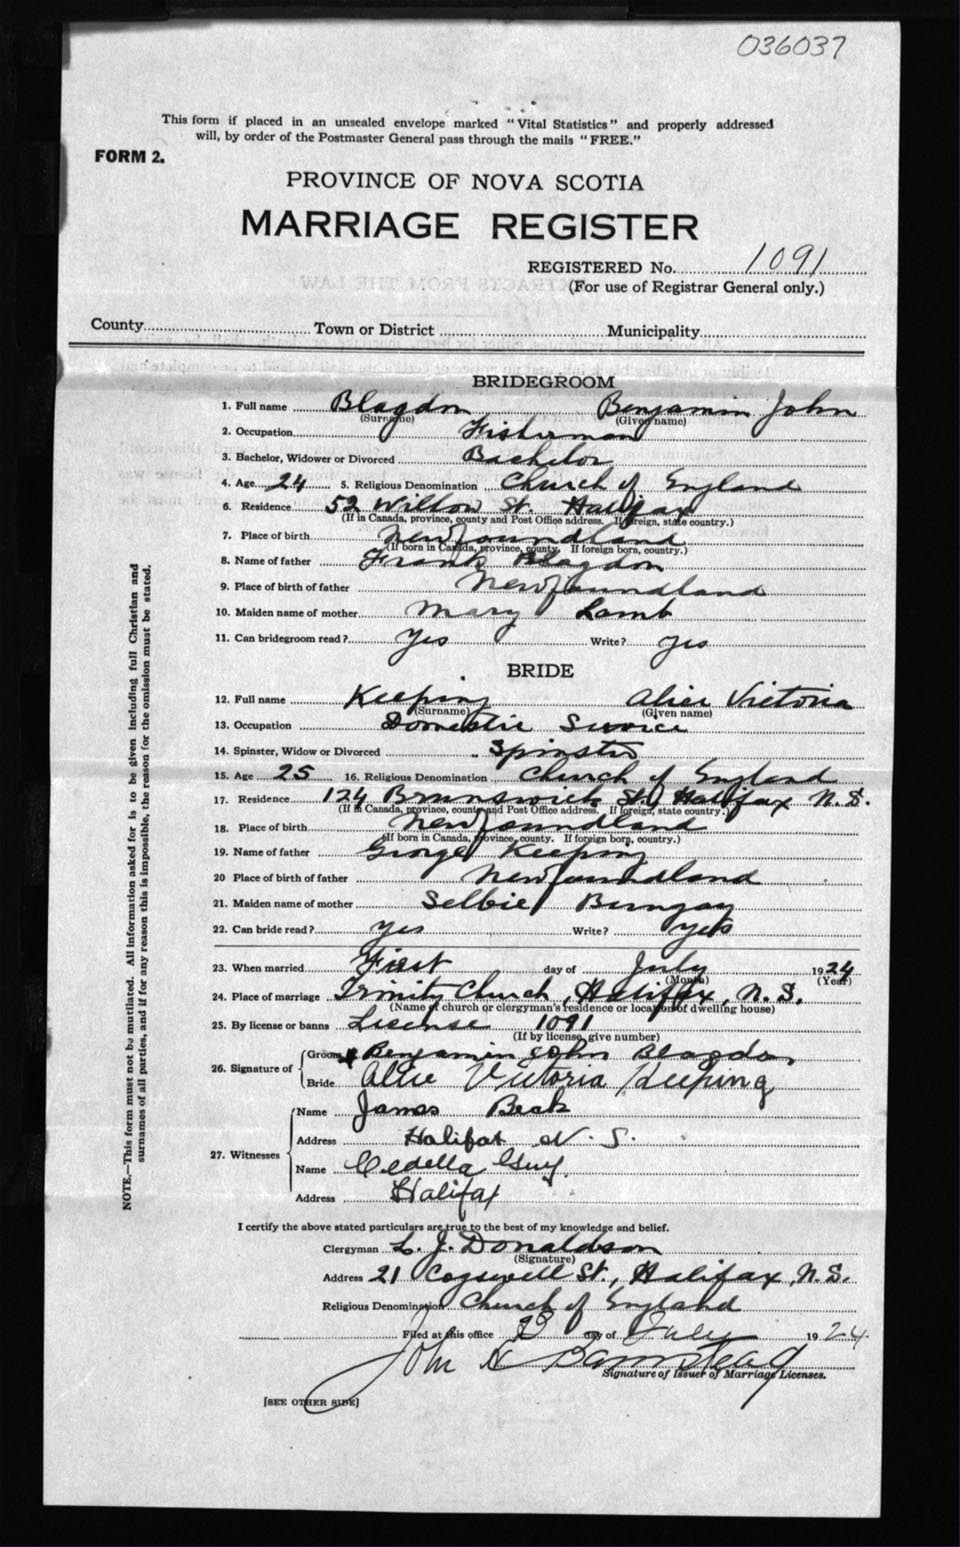 036037
This form if placed in an unsealed envelope marked "Vital Statistics" and properly addressed
will, by order of the Postmaster General pass through the mails "FREE."
FORM 2.
PROVINCE OF NOVA SCOTIA
MARRIAGE REGISTER
REGISTERED No. 1091
(For use of Registrar General only.)
County Town or District Municipality
BRIDEGROOM
1. Full name Blagdon Benjamin John
(Surname) (Given name)
2. Occupation Fisherman
3. Bachelor, Widower or Divorced Bachelor
4. Age 24 5. Religious Denomination Church of England
6. Residence 52 Willow St. Halifax
(If in Canada, province, county and Post Office address. If foreign, state country.)
7. Place of birth Newfoundland
(If born in Canada, province, county. If foreign born, country.)
8. Name of father Frank Blagdon
9. Place of birth of father Newfoundland
10. Maiden name of mother Mary Lamb
11. Can bridegroom read? Yes Write? Yes
BRIDE
12. Full name Keeping Alice Victoria
(Surname) (Given name)
13. Occupation Domestic Service
14. Spinster, Widow or Divorced Spinster
15. Age 25 16. Religious Denomination Church of England
17. Residence 124 Brunswick St, Halifax N.S.
(If in Canada, province, county and Post Office address. If foreign, state country.)
18. Place of birth Newfoundland
(If born in Canada, province, county. If foreign born, country.)
19. Name of father George Keeping
20 Place of birth of father Newfoundland
21. Maiden name of mother Selbie Bungay
22. Can bride read? Yes Write? Yes
23. When married First day of July 1924
(Month) (Year)
24. Place of marriage Trinity Church, Halifax, N.S.
(Name of church or clergyman's residence or location of dwelling house)
25. By license or banns License 1091
(If by license, give number)
26. Signature of Groom Benjamin John Blagdon
Bride Alice Victoria Keeping
27. Witnesses Name James Beck
Address Halifax N.S.
Name Cedella Guy
Address Halifax
I certify the above stated particulars are true to the best of my knowledge and belief.
Clergyman L. J. Donaldson
(Signature)
Address 21 Cogswell St., Halifax, N.S.
Religious Denomination Church of England
Filed at this office day of July 1924.
John
Signature of Issuer of Marriage Licenses.
[SEE OTHER SIDE]
NOTE.—This form must not be mutilated. All information asked for is to be given including full Christian and
surnames of all parties, and if for any reason this is impossible, the reason for the omission must be stated.